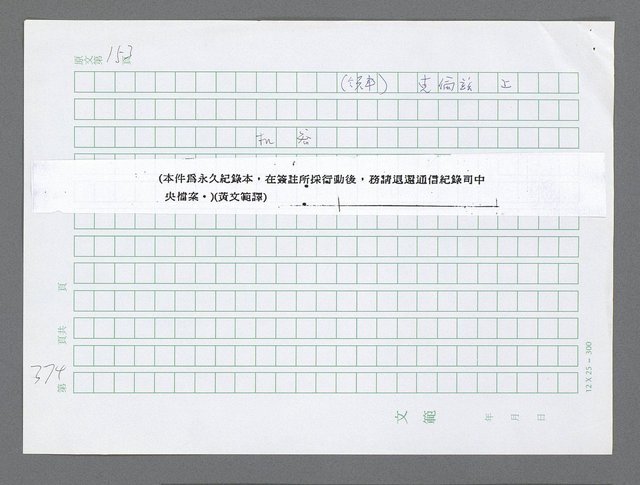 原文第153頁
(領事) 克倫 上
(本件爲永久紀錄本,在簽註所採行動後,務請退還通信紀錄司中
央檔案。)(黃文範譯)
頁
頁共
第
374
12 X 25 - 300
文範
年 月 日